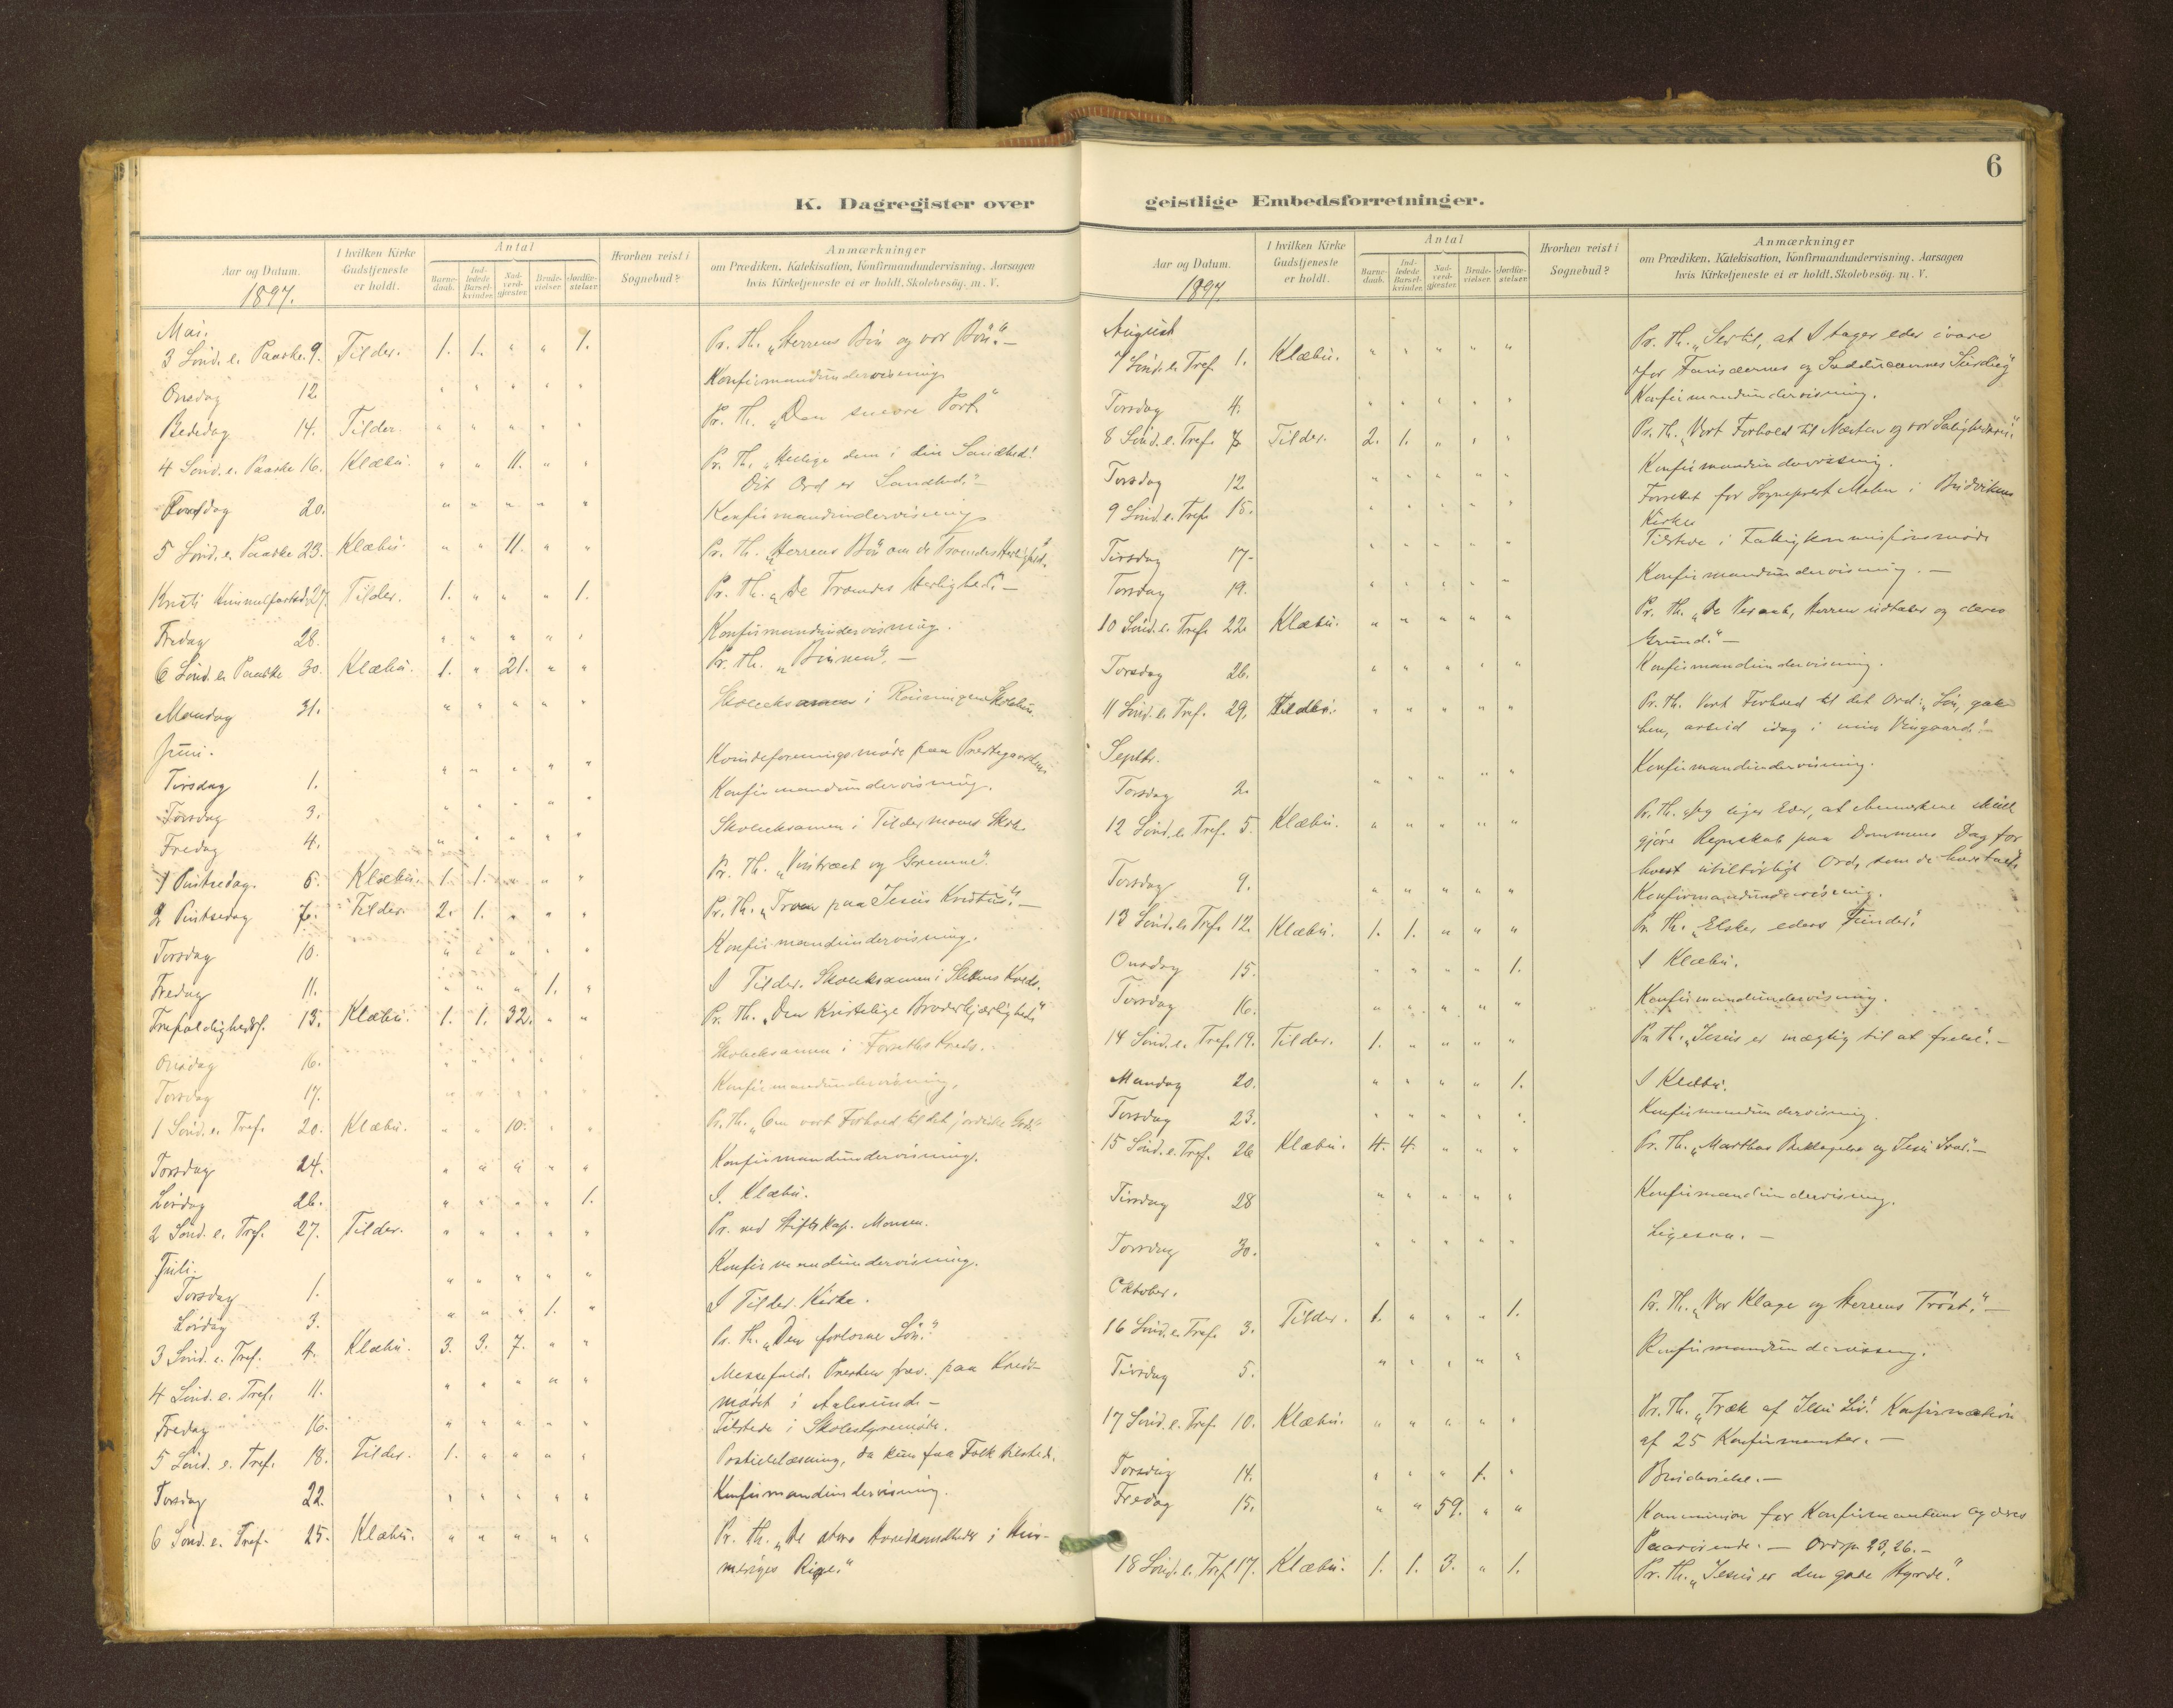 K. Dagregister over
Aar og Datum. 1897.
I hvilken Kirke Gudstjeneste er holdt.
Antal
Barne-daab.
Ind-ledede Barsel-kvinder.
Nad-verd-gjester.
Brude-vielser.
Jordfæ-stelser.
Hvorhen reist i Sognebud?
Anmærkninger
om Prædiken, Katekisation, Konfirmandundervisning. Aarsagen
hvis Kirketjeneste ei er holdt. Skolebesög. m. V.
Mai.
3 Sönd. e. Paaske 9. Tilder. 1. 1. " " 1. Pr. Th. "Herrens Bön og vor Bön." –
Onsdag 12 " " " " Konfirmandundervisning
Bededag 14. Tilder. " " " " " Pr. Th. "Den snevre Port."
4 Sönd. e. Paaske 16. Klæbu. " " 11. " " Pr. Th. "Hellige dem i din Sandhed!
Dit Ord er Sandhed." –
Torsdag 20. " " " " " Konfirmandundervisning
5 Sönd. e. Paaske 23. Klæbu. " " 11. " " Pr. Th. "Herrens Bön om de Troendes Herlighed".
Kristi Himmelfartsd. 27. Tilder. 1. " " " 1. Pr. Th. "De Troendes Herlighed." –
Fredag 28. " " " " " Konfirmandundervisning.
6 Sönd. e. Paaske 30. Klæbu. 1. " 21. " " Pr. Th. "Bönnen". –
Mandag 31. " " " " " Skoleeksamen i
Juni.
Tirsdag 1. " " " " " Kvindeforeningsmöde paa Prestegaarden
Torsdag 3. " " " " " Konfirmandundervisning.
Fredag 4. " " " " " Skoleeksamen i Tildermoens Skole
1 Pintsedag. 6. Klæbu. 1. 1. " " " Pr. Th. "Vintræet og Grenene".
2 Pintsedag 7. Tilder. 2. 1. " " " Pr. Th. "Troen paa Jesus Kristus." –
Torsdag 10. " " " " " Konfirmandundervisning.
Fredag 11. " " " 1. " I Tilder. Skoleeksamen i Kreds.
Trefoldighedsf. 13. Klæbu. 1. 1. 32. " " Pr. Th. "Den Kristelige Broderkjærlighed."
Onsdag 16. " " " " " Skoleeksamen i Forseths Kreds.
Torsdag 17. " " " " " Konfirmandundervisning.
1 Sönd. e. Tref. 20. Klæbu. " " 10. " " Pr. Th. "Om vort Forhold til det jordiske Gods"
Torsdag 24. " " " " " Konfirmandundervisning.
Lördag 26. " " " " 1. I Klæbu.
2 Sönd. e. Tref. 27. Tilder. " " " " " Pr. ved Stiftskap. Monsen.
Juli.
Torsdag 1. " " " " " Konfirmandundervisning.
Lördag 3. " " " 1. " I Tilder Kirke.
3 Sönd. e. Tref. 4. Klæbu. 3. 3. 7. " " Pr. Th. "Den forlorne Sön."
4 Sönd. e. Tref. 11. " " " " " Messefald. Presten præd. paa Kreds-
mödet i Aalesund –
Fredag 16. " " " " " Tilstede i Skolestyremöde.
5 Sönd. e. Tref. 18. Tilder. 1. " " " " Postillelæsning, da kun faa Folk tilstede.
Torsdag 22. " " " " " Konfirmandundervisning.
6 Sönd. e. Tref. 25. Klæbu. " " " " " Pr. Th. "De store Hovedsandheder i Him-
meriges Rige."
6
geistlige Embedsforretninger.
Aar og Datum. 1897.
I hvilken Kirke Gudstjeneste er holdt.
Antal
Barne-daab.
Ind-ledede Barsel-kvinder.
Nad-verd-gjester.
Brude-vielser.
Jordfæ-stelser.
Hvorhen reist i Sognebud?
Anmærkninger
om Prædiken, Katekisation, Konfirmandundervisning. Aarsagen
hvis Kirketjeneste ei er holdt. Skolebesög. m. V.
August
7 Sönd. e. Tref. 1. Klæbu. " " " " " Pr. Th. "Ser til, at I tager eder ivare
for Farisæernes og Sadducæernes Surdeig"
Torsdag 4. " " " " " Konfirmandundervisning.
8 Sönd. e. Tref. 8 Tilder. 2. 1. " " " Pr. Th. "Vort Forhold til Næsten og vor Salighedssag."
Torsdag 12. " " " " " Konfirmandundervisning.
9 Sönd. e. Tref. 15. " " " " " Forrettet for Sogneprest i
Kirke
Tirsdag 17. " " " " " Tilstede i Fattigkommissionsmöde
Torsdag 19. " " " " " Konfirmandundervisning. –
10 Sönd. e. Tref. 22. Klæbu. " " " " " Pr. Th. "De Veraab, Herren udtaler og deres
Grund." –
Torsdag 26. " " " " " Konfirmandundervisning.
11 Sönd. e. Tref. 29. Klæbu. " " " " " Pr. Th. Vort Forhold til det Ord: "Sön, gak
hen, arbeid idag i min Vingaard." –
Septbr.
Torsdag 2. " " " " " Konfirmandundervisning.
12 Sönd. e. Tref. 5. Klæbu. " " " " " Pr. Th. Jeg siger Eder, at Menneskene skulle
gjöre Regnskab paa Dommens Dag for
hvert utilbörligt Ord, som de have talt.
Torsdag 9. " " " " " Konfirmandundervisning.
13 Sönd. e. Tref. 12. Klæbu. 1. 1. " " " Pr. Th. "Elsker eders Fiender."
Onsdag 15. " " " " 1. I Klæbu.
Torsdag 16. " " " " " Konfirmandundervisning.
14 Sönd. e. Tref. 19. Tilder. 1. " " " " Pr. Th. "Jesus er mægtig til at frelse". –
Mandag 20. " " " " 1. I Klæbu.
Torsdag 23. " " " " " Konfirmandundervisning.
15 Sönd. e. Tref. 26 Klæbu. 4. 4. " " " Pr. Th. "Marthas Beklagelse og Jesu Svar." –
Tirsdag 28 " " " " " Konfirmandundervisning.
Torsdag 30. " " " " " Ligesaa. –
Oktober.
16 Sönd. e. Tref. 3. Tilder. 1. " " " 1. Pr. Th. "Vor Klage og Herrens Tröst." –
Tirsdag 5. " " " " " Konfirmandundervisning.
17 Sönd. e. Tref. 10. Klæbu. " " " " " Pr. Th. "Træk af Jesu Liv." Konfirmation
af 25 Konfirmanter. –
Torsdag 14. " " " 1. " Brudevielse. –
Fredag 15. " " 59. " " Kommunion for Konfirmanterne og deres
Paarörende. – Ordspr. 23, 26. –
18 Sönd. e. Tref. 17. Klæbu. 1. 1. 3. " 1. Pr. Th. "Jesus er den gode Hyrde."